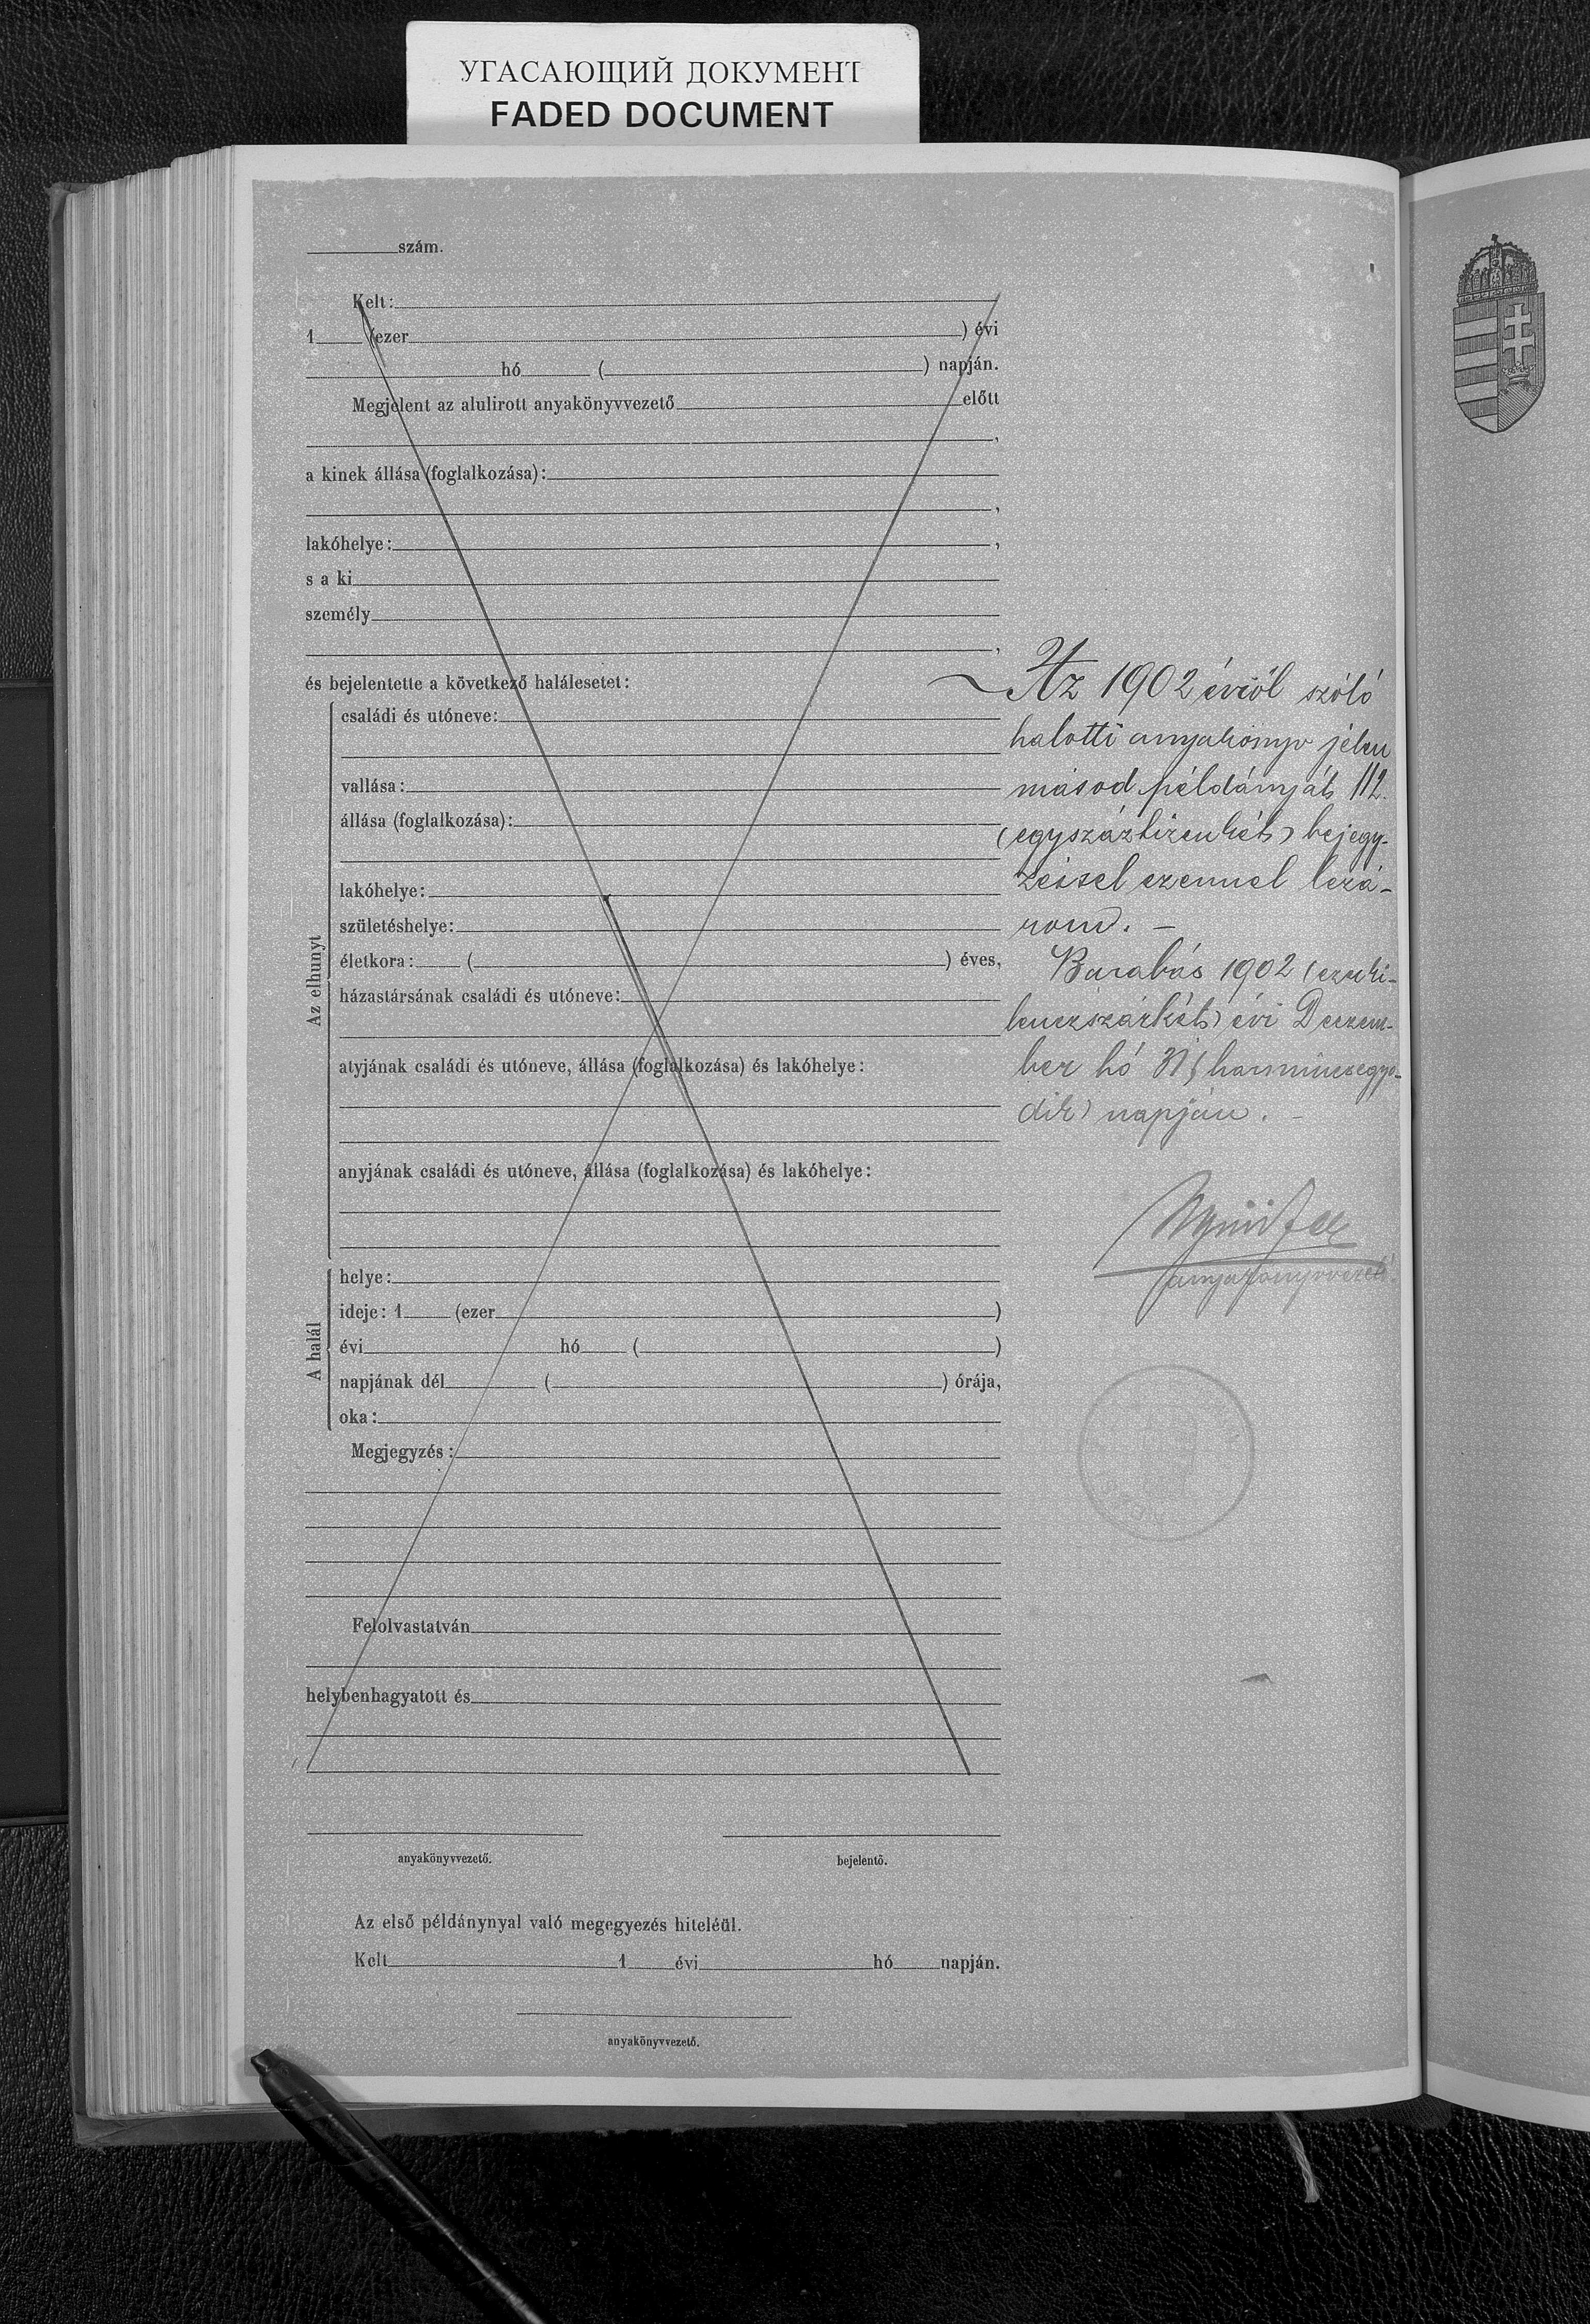 УГАСАЮЩИЙ ДОКУМЕНТ
FADED DOCUMENT
szám.
Kelt:
1 (ezer ) évi
hó ( ) napján.
Megjelent az alulirott anyakönyvvezető előtt
,
a kinek állása (foglalkozása):
,
lakóhelye: ,
s a ki
személy
,
és bejelentette a következő halálesetet:
Az elhunyt
családi és utóneve:
vallása:
állása (foglalkozása):
lakóhelye:
születéshelye:
életkora: ( ) éves,
házastársának családi és utóneve:
atyjának családi és utóneve, állása (foglalkozása) és lakóhelye:
anyjának családi és utóneve, állása (foglalkozása) és lakóhelye:
A halál
helye:
ideje: 1 (ezer )
évi hó ( )
napjának dél ( ) órája,
oka:
Megjegyzés:
Felolvastatván
helybenhagyatott és
anyakönyvvezető. bejelentő.
Az első példánynyal való megegyezés hiteléül.
Kelt 1 évi hó napján.
anyakönyvvezető.
Az 1902 évről szóló
halotti anyakönyv jelen
másod példányját 112.
(egyszáztizenkét) bejegy-
zéssel ezennel lezá-
rom. –
Barabás 1902 (ezerki-
lenczszázkét) évi Deczem-
ber hó 31 (harminczegye-
dik) napján. –
anyakönyvvezető.